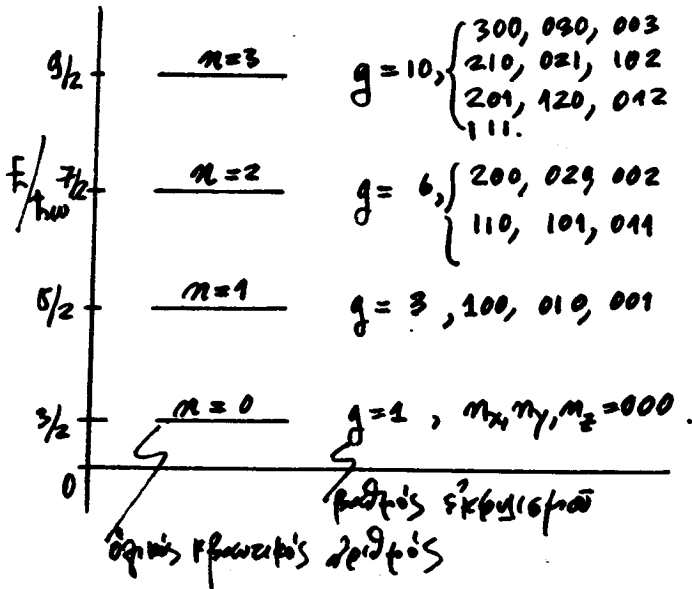 9/2 n=3 g=10, { 300, 030, 003
210, 021, 102
201, 120, 012
111.
E/ħω 7/2 n=2 g= 6, { 200, 020, 002
110, 101, 011
5/2 n=1 g= 3 , 100, 010, 001
3/2 n=0 g=1 , nx, ny, nz =000 .
0
βαθμός ἐκφυλισμοῦ
ὁλικός κβαντικός ἀριθμός